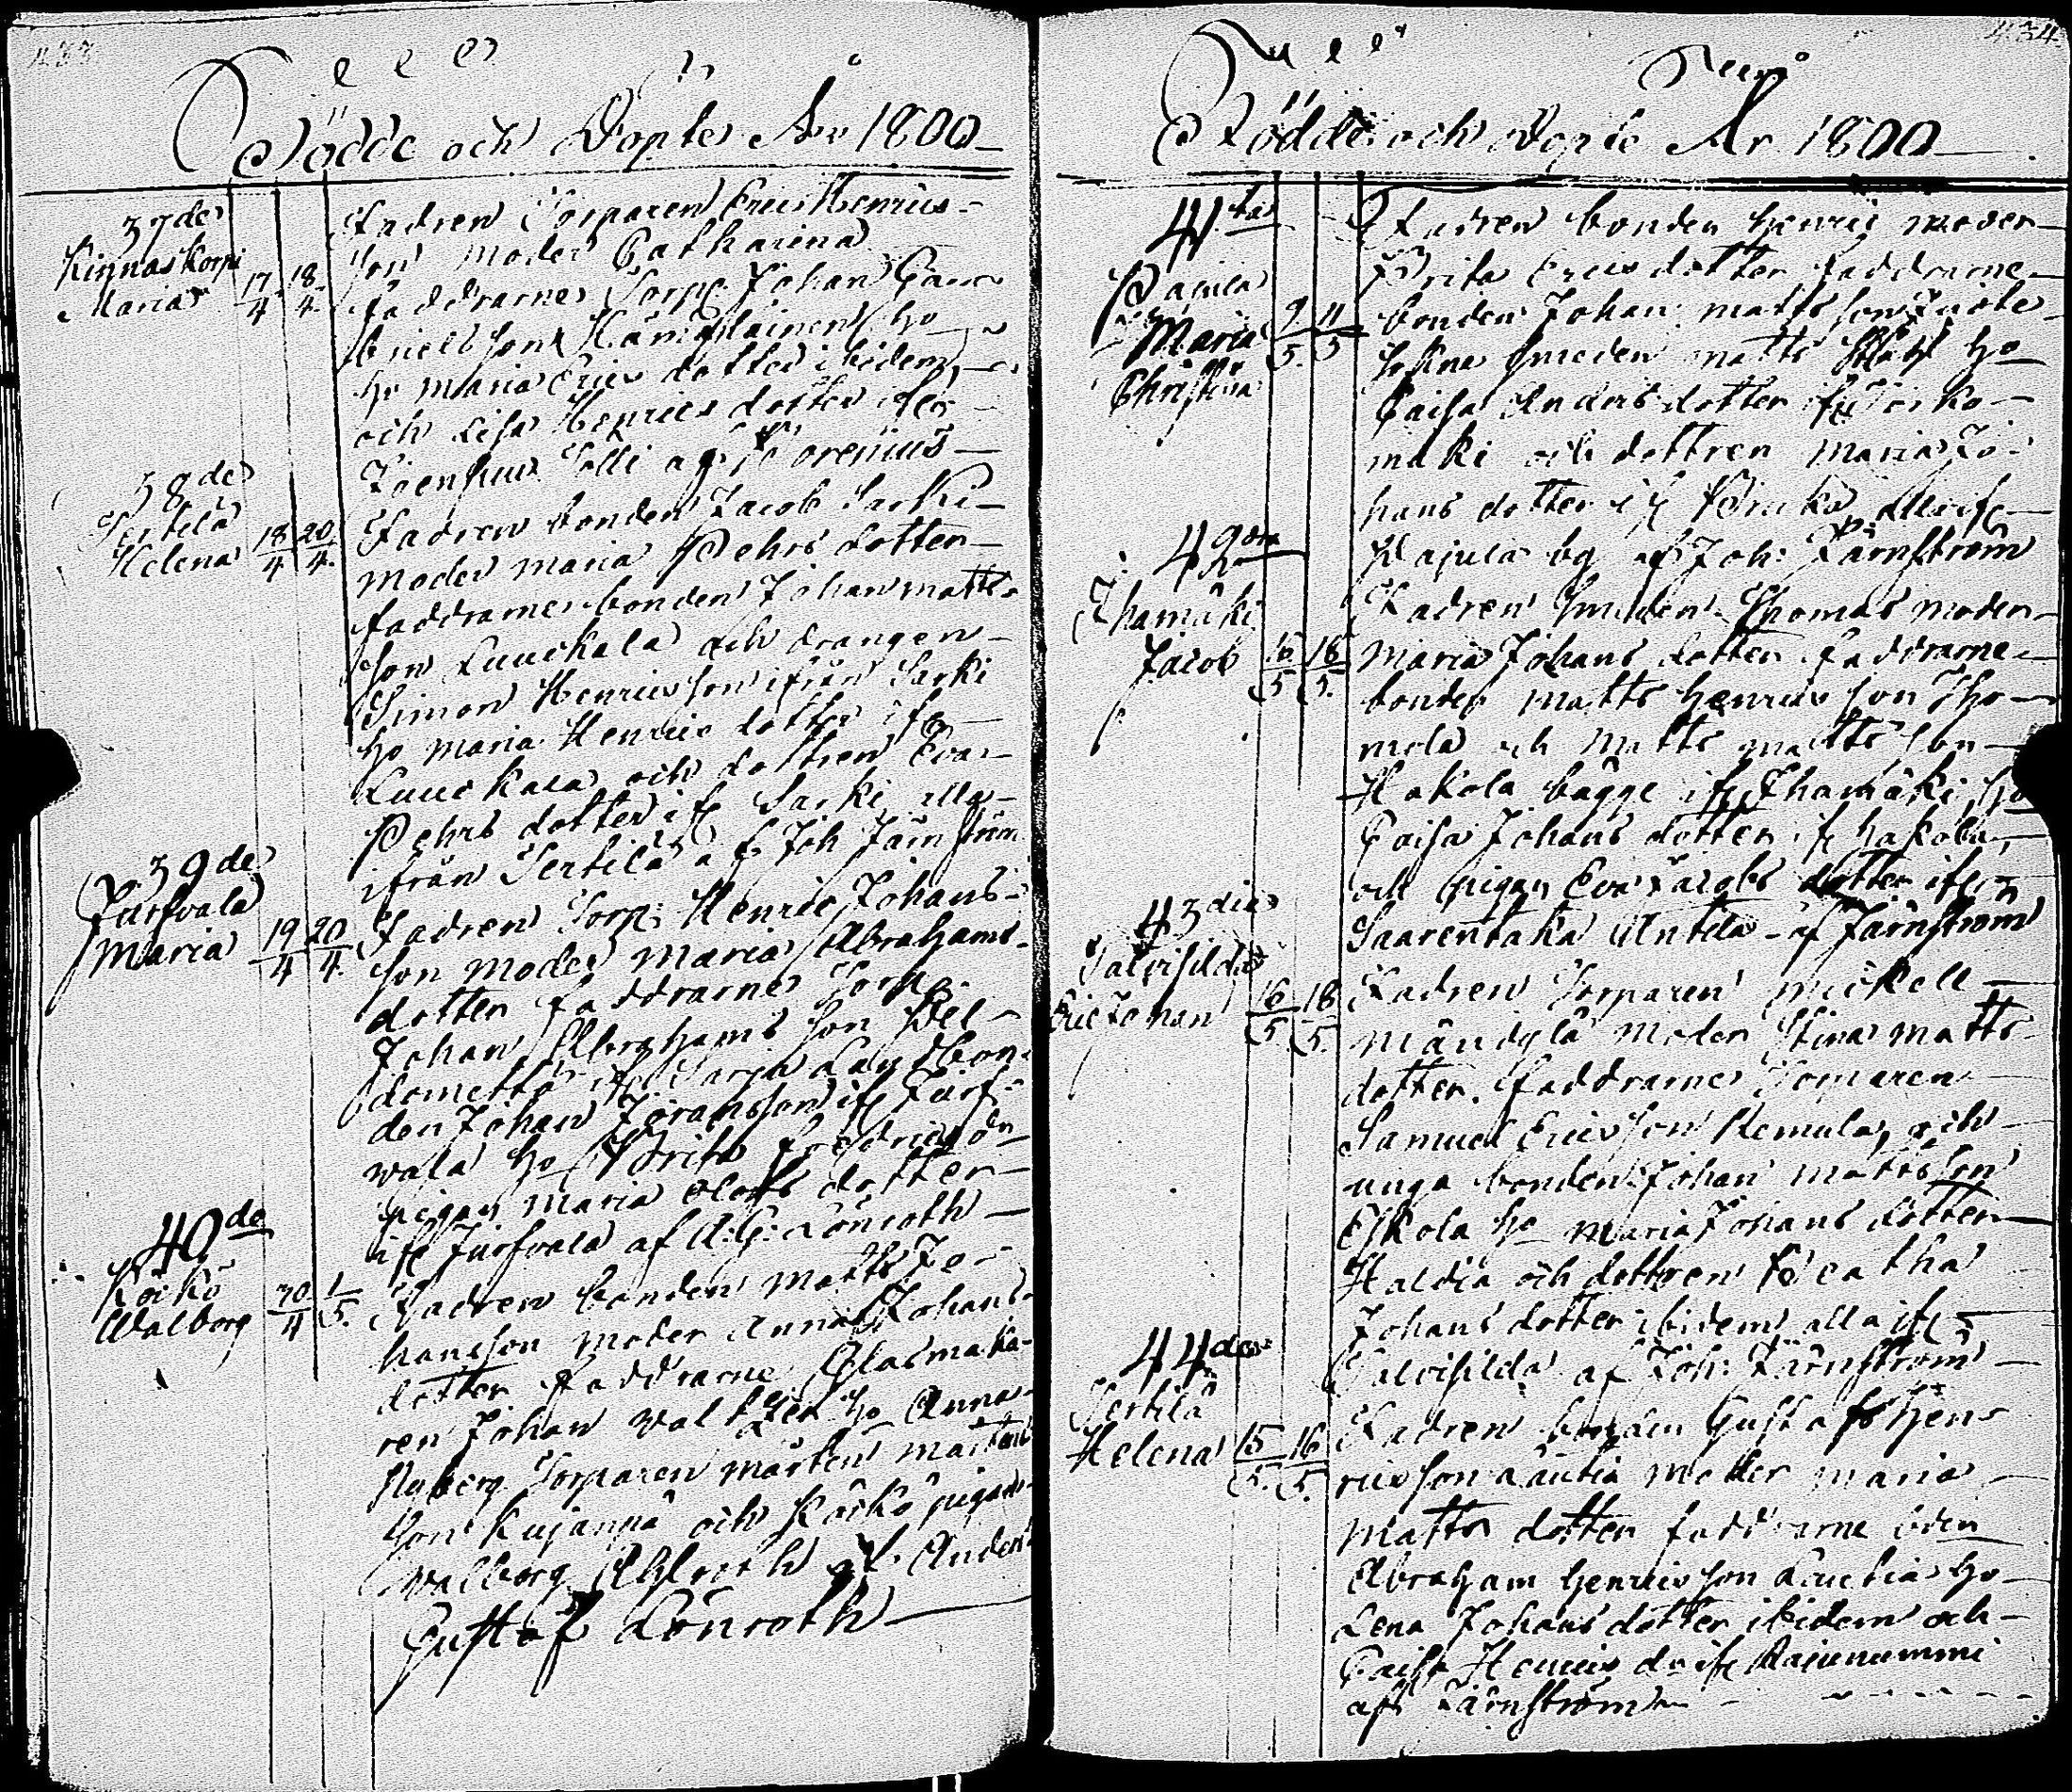 433
Födde och Döpte År 1800
37de
Kinnaskorpi
Maria
17/4 18/4
Fadren Torparen Eric Henrics-
son Moder Catharina
faddrarne Torp. Johan Gab-
rielsson Hämäläinen ho
ho Maria Erics dotter ibidem
och Lisa Henrics dotter ifrån
38de
Sertilä
Helena
18/4 20/4
Fadren bonden Jacob Sarki
Moder Maria Pehrs dotter
faddrarne bonden Johan Matts-
son Luuckala och drängen
Simon Henricsson ifrån Sarki
ho Maria Henrics dotter ifr
Luuckala och dottren Eva
Pehrs dotter ifr Sarki alla
ifrån Sertilä af Joh Järnström
39de
Turfvala
Maria
19/4 20/4
Fadren Torp: Henric Johans-
son Moder Maria Abrahams-
dotter faddrarne Torp.
Johan Abrahams son
den Johan Jöransson ifr Turf-
wala ho Brita Fredrics dr
pigan Maria Olofs dotter
ifr Turfvala af A: G: Lönroth
40de
Köikö
Walborg
30/4 1/5
Fadren bonden Matts Jo-
hansson moder Anna Johans-
dotter faddrarne Glasmaka-
ren Johan Waltzer ho Anna
Nyberg Torparen Mårten Mårtens
son Kujanpä och Köikö pigan
Walborg Ahlroth af Anders
Gustaf Lönroth
434
Födde och Döpte År 1800
41ta
Pajula
Maria
Christina
9/5 11/5
Fadren bonden Henric moder
Brita Erics dotter faddrarne
bonden Johan Matts son
Smeden Matts ho
Caisa Anders dotter ifr
mäki och dottren Maria Jo-
hans dotter ifr alla ifr
Pajula by af Joh: Järnström
42dra
Ihamäki
Jacob
16/5 18/5
Fadren Smeden Thomas moder
Maria Johans dotter faddrarne
bonden Matts Henrics son Tho-
mola och Matts Matts son
Hakola bägge ifr Ihamäki, ho
Caisa Johans dotter ifr Hakola,
och pigan Eva Jacobs dotter ifr
Saarentaka Antila af Järnström
43die
Talvisilda
Eric Johan
16/5 18/5
Fadren Torparen Mickell
Mändylä moder Stina Matts
dotter. faddrarne Torparen
Samuel Ericsson Remula, och
unga bonden Johan Mattsson
Eskola ho Maria Johans dotter
Haldia och dottren Beatha
Johans dotter ibidem alla ifr
Talvisilda af Joh: Järnström
44de
Sertilä
Helena
15/5 16/5
Fadren bonden Gustaf Hen-
ricsson Lautia Moder Maria
Matts dotter faddrarne bden
Abraham Henrics son Lautia ho
Lena Johans dotter ibidem och
Caisa Henrics dr ifr Raiunummi
af Järnström